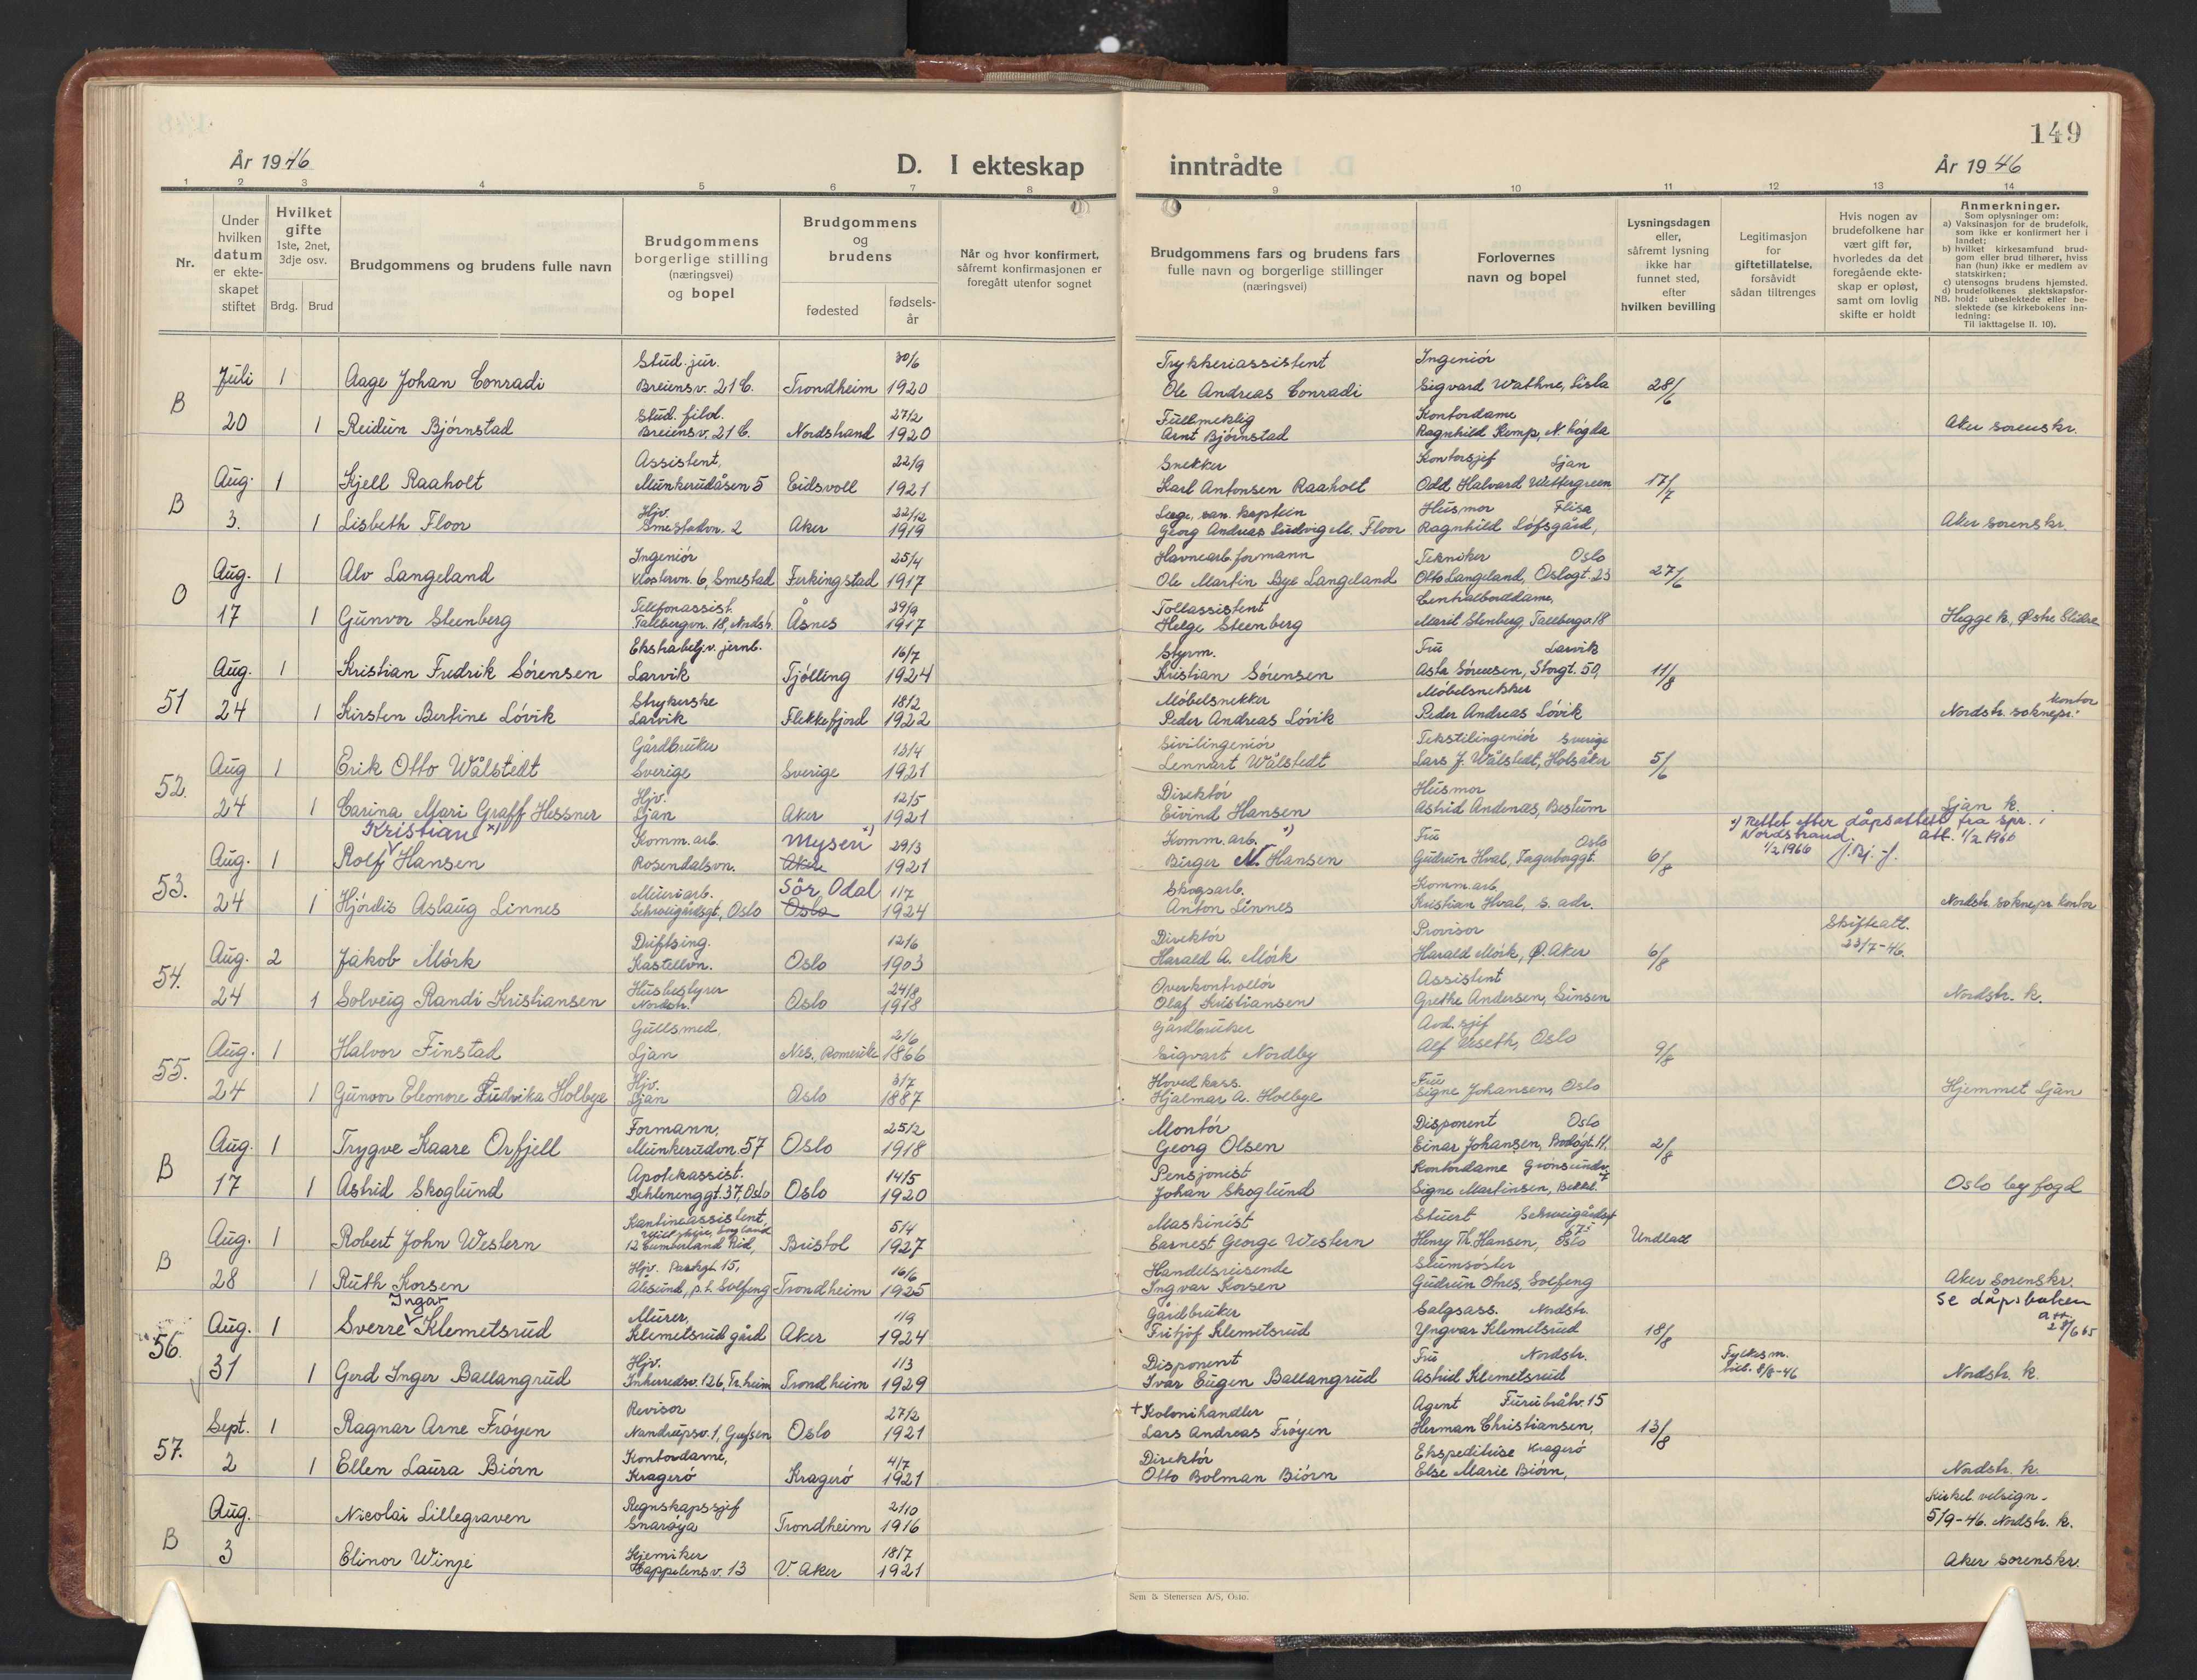 149
År 1946
D. I ekteskap inntrådte
År 1946
1 2 3 4 5 6 7 8 9 10 11 12 13 14
Nr.
Under hvilken datum er ekte-skapet stiftet
Hvilket gifte 1ste, 2net, 3dje osv.
Brdg. Brud
Brudgommens og brudens fulle navn
Brudgommens borgerlige stilling (næringsvei) og bopel
Brudgommens og brudens
fødested
fødsels-år
Når og hvor konfirmert, såfremt konfirmasjonen er foregått utenfor sognet
Brudgommens fars og brudens fars fulle navn og borgerlige stillinger (næringsvei)
Forlovernes navn og bopel
Lysningsdagen eller, såfremt lysning ikke har funnet sted, efter hvilken bevilling
Legitimasjon for giftetillatelse, forsåvidt sådan tiltrenges
Hvis nogen av brudefolkene har vært gift før, hvorledes da det foregående ekte-skap er opløst, samt om lovlig skifte er holdt
Anmerkninger.
Som oplysninger om:
a) Vaksinasjon for de brudefolk, som ikke er konfirmert her i landet;
b) hvilket kirkesamfund brud-gom eller brud tilhører, hviss han (hun) ikke er medlem av statskirken;
c) utensogns brudens hjemsted.
d) brudefolkenes slektskapsfor-
NB. hold: ubeslektede eller be-slektede (se kirkebokens inn-ledning:
Til iakttagelse II. 10).
B
Juli 1 Aage Johan Conradi Stud. jur. Breiensv. 21 C. Trondheim 30/6 1920 Trykkeriassistent Ole Andreas Conradi Ingeniör Sigvard Wathne, Lisla 28/6
20 1 Reidun Björnstad Stud. filol. Breiensv. 21 C. Nordstrand 27/2 1920 Fullmektig Arnt Björnstad Kontordame Ragnhild Kemp, N. högda Aker sorenskr.
B
Aug. 1 Kjell Raaholt Assistent, Munkerudåsen 5 Eidsvoll 22/9 1921 Snekker Karl Antonsen Raaholt Kontorsjef Ljan Odd Halvard Wettergreen 17/7
3. 1 Lisbeth Floor Hjv. Smestadvn. 2 Aker 22/12 1919 Lege, san. kaptein Georg Andreas Ludvig M. Floor Husmor Flisa Ragnhild Löfsgård, Aker sorenskr.
O
Aug. 1 Alv Langeland Ingeniör Klostervn. 6, Smestad Ferkingstad 25/4 1917 Havnearb.formann Ole Martin Bye Langeland Tekniker Oslo Otto Langeland, Oslogt. 23 27/6
17 1 Gunvor Steenberg Telefonassist. Tallbergvn. 18, Nordstr. Åsnes 29/9 1917 Tollassistent Helge Steenberg Centralborddame, Marit Stenberg, Tallbergv. 18 Hegge k., Østre Slidre
51
Aug. 1 Kristian Fredrik Sörensen Ekstrabetj. v. jernb. Larvik Tjölling 16/7 1924 Styrm. Kristian Sörensen Fru Larvik Asta Sörensen, Storgt. 50, 11/8
24 1 Kirsten Bertine Lövik Strykerske Larvik Flekkefjord 18/2 1922 Möbelsnekker Peder Andreas Lövik Möbelsnekker Peder Andreas Lövik Nordstr. soknepr. kontor
52.
Aug 1 Erik Otto Wålstedt Gårdbruker Sverige Sverige 13/4 1921 Sivilingeniör Lennart Wålstedt Tekstilingeniör Sverige Lars J. Wålstedt, Holsåker 5/6
24 1 Carina Mari Graff Hessner Hjv. Ljan Aker 12/5 1921 Direktör Eivind Hansen Husmor Astrid Andenæs, Bestum Ljan k.
53.
Kristian x)
Aug. 1 Rolf Hansen Komm. arb. Rosendalsvn. Mysen x) Aker 29/3 1921 Komm. arb. x) Birger M. Hansen Fru Oslo Gudrun Hval, Fagerborggt. 6/8
x) Rettet etter dåpsattest fra spr. i Nordstrand. att. 1/2 1966
1/2 1966 J. Bj. J.
24 1 Hjördis Aslaug Linnes Meieriarb. Schweigårdsgt, Oslo Sör, Odal Oslo 11/7 1924 Skogsarb. Anton Linnes Komm. arb Kristian Hval, s. adr. Nordstr. soknepr. kontor
54.
Aug. 2 Jakob Mörk Driftsing. Kastellvn. Oslo 12/6 1903 Direktör Harald A. Mörk Provisor Harald Mörk, Ø. Aker 6/8 Skifteatt. 23/7-46.
24 1 Solveig Randi Kristiansen Husbestyrer Nordstr. Oslo 24/8 1918 Overkontrollör Olaf Kristiansen Assistent Grethe Andersen, Sinsen Nordstr. k.
55.
Aug. 1 Halvor Finstad Gullsmed, Ljan Nes, Romerike 2/6 1866 Gårdbruker Sigvart Nordby Avd. sjef Alf Useth, Oslo 9/8
24 1 Gunvor Eleonore Ludvika Holbye Hjv. Ljan Oslo 3/7 1887 Hovedkass. Hjalmar A. Holbye Fru Signe Johansen, Oslo Hjemmet Ljan
B
Aug. 1 Trygve Kaare Orfjell Formann, Munkerudvn. 57 Oslo 25/2 1918 Montör Georg Olsen Disponent Oslo Einar Johansen, Bodögt. 11, 2/8
17 1 Astrid Skoglund Apotekassist. Dehleneggt. 37, Oslo Oslo 14/5 1920 Pensjonist Johan Skoglund Kontordame Grönsundv. 7 Signe Martinsen, Bekkel. Oslo byfogd
B
Aug. 1 Robert John Western Kantineassistent, England 12 Cumberland Rd, Bristol 5/4 1927 Maskinist Earnest George Western Stuert Schweigårdsgt Henry Th. Hansen, Oslo Undlatt
28 1 Ruth Korsen Hjv. Parkgt. 15, Ålesund, p.t. Solfeng Trondheim 16/6 1925 Handelsreisende Ingvar Korsen Stumsöster Gudrun Olnes, Solfeng Aker sorenskr.
56.
Ingar
Aug. 1 Sverre Klemetsrud Murer, Klemetsrud gård Aker 11/9 1924 Gårdbruker Fritjof Klemetsrud Salgsass. Nordstr. Yngvar Klemetsrud 18/8 Se dåpsboken att 28/6 65
31 1 Gerd Inger Ballangrud Hjv. Inherredsv. 126, Tr.heim Trondheim 11/3 1929 Disponent Ivar Eugen Ballangrud Fru Nordstr. Astrid Klemetsrud Fylkesm. bev. 8/8-46 Nordstr. k.
57.
Sept. 1 Ragnar Arne Fröyen Revisor Nandrupsv. 1, Grefsen Oslo 27/2 1921 + Kolonihandler Lars Andreas Fröyen Agent Furubråtv. 15 Herman Christiansen, 13/8
2 1 Ellen Laura Biörn Kontordame, Kragerö Kragerö 4/7 1921 Direktör Otto Bolman Biörn Ekspeditrise Kragerö Else Marie Biörn, Nordstr. k.
B
Aug. Nicolai Lillegraven Regnskapssjef Snaröya Trondheim 21/10 1916 Kirkel. velsign. 5/9-46. Nordstr. k.
3 Elinor Winje Kjemiker Cappelensv. 13 V. Aker 18/7 1921 Aker sorenskr.
Sem & Stenersen A/S, Oslo.